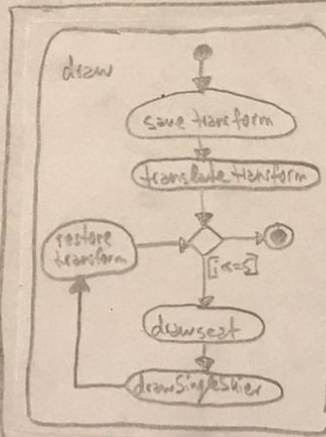 draw
save transform
translate transform
restore
transform
[i<=5]
drawseat
drawSingleSkier